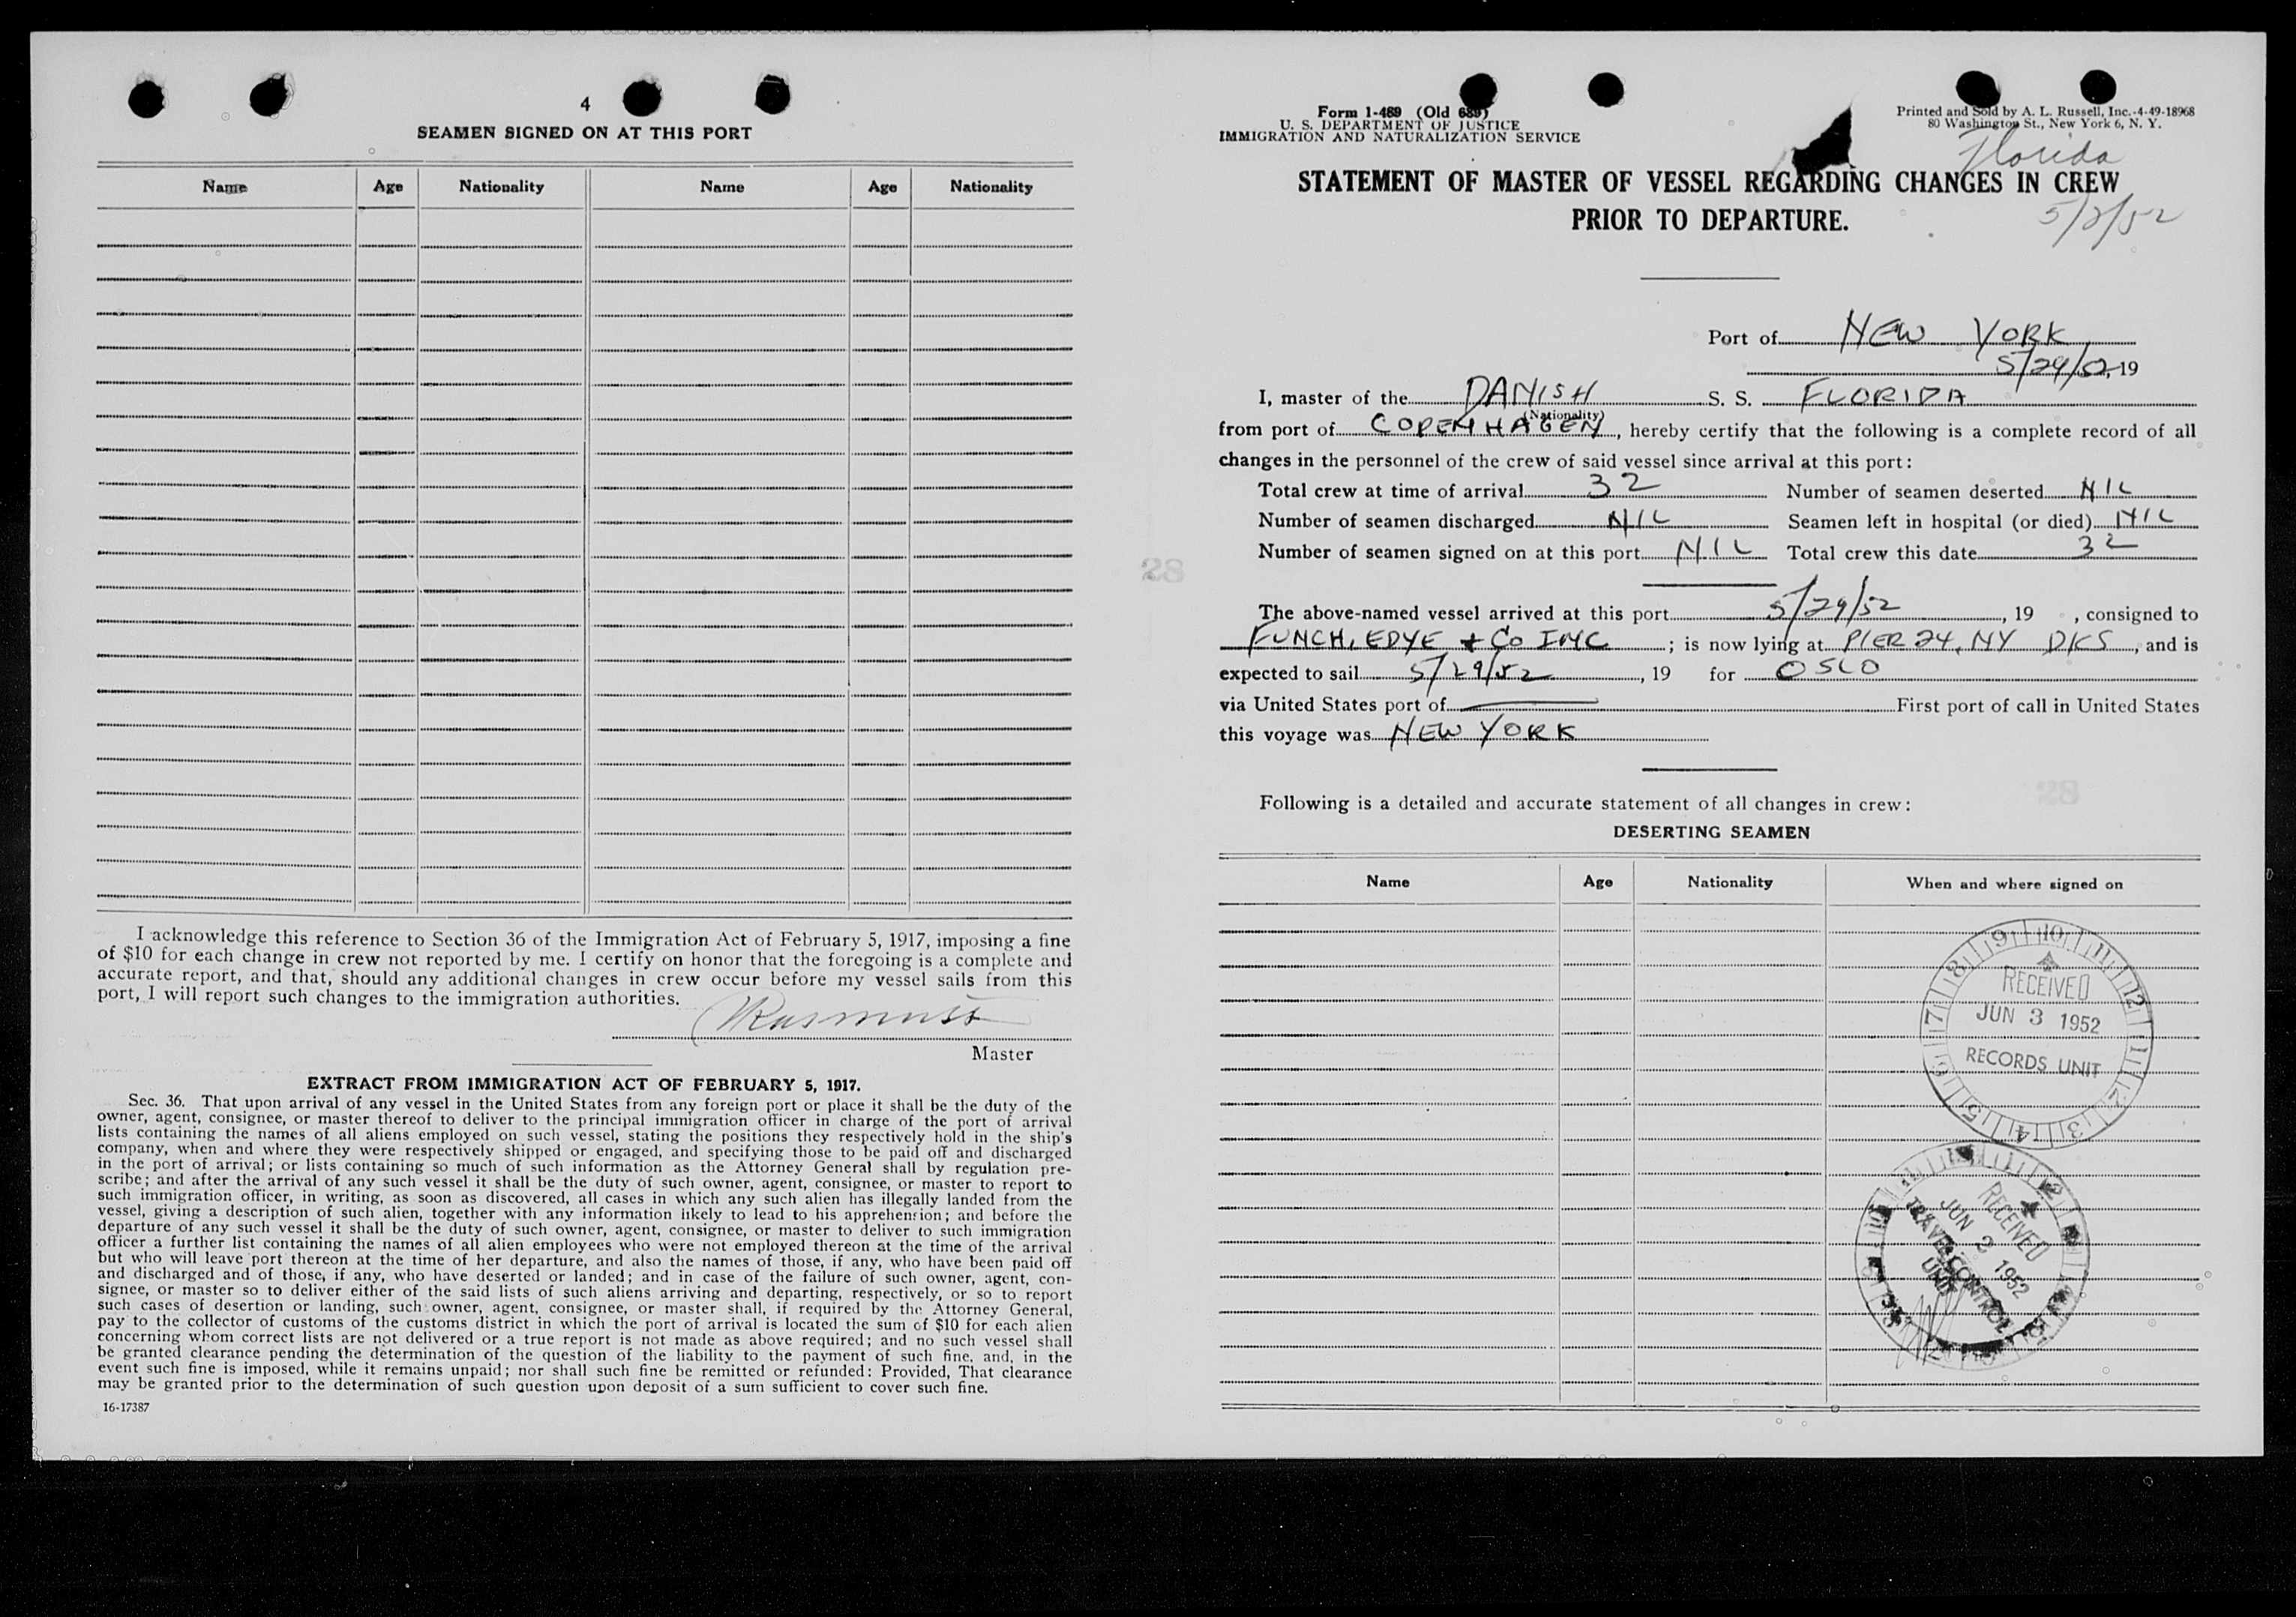 4
SEAMEN SIGNED ON AT THIS PORT
Name Age Nationality Name Age Nationality
I acknowledge this reference to Section 36 of the Immigration Act of February 5, 1917, imposing a fine
of $10 for each change in crew not reported by me. I certify on honor that the foregoing is a complete and
accurate report, and that, should any additional changes in crew occur before my vessel sails from this
port, I will report such changes to the immigration authorities.
Master
EXTRACT FROM IMMIGRATION ACT OF FEBRUARY 5, 1917.
Sec. 36. That upon arrival of any vessel in the United States from any foreign port or place it shall be the duty of the
owner, agent, consignee, or master thereof to deliver to the principal immigration officer in charge of the port of arrival
lists containing the names of all aliens employed on such vessel, stating the positions they respectively hold in the ship's
company, when and where they were respectively shipped or engaged, and specifying those to be paid off and discharged
in the port of arrival; or lists containing so much of such information as the Attorney General shall by regulation pre-
scribe; and after the arrival of any such vessel it shall be the duty of such owner, agent, consignee, or master to report to
such immigration officer, in writing, as soon as discovered, all cases in which any such alien has illegally landed from the
vessel, giving a description of such alien, together with any information likely to lead to his apprehension; and before the
departure of any such vessel it shall be the duty of such owner, agent, consignee, or master to deliver to such immigration
officer a further list containing the names of all alien employees who were not employed thereon at the time of the arrival
but who will leave port thereon at the time of her departure, and also the names of those, if any, who have been paid off
and discharged and of those, if any, who have deserted or landed; and in case of the failure of such owner, agent, con-
signee, or master so to deliver either of the said lists of such aliens arriving and departing, respectively, or so to report
such cases of desertion or landing, such owner, agent, consignee, or master shall, if required by the Attorney General,
pay to the collector of customs of the customs district in which the port of arrival is located the sum of $10 for each alien
concerning whom correct lists are not delivered or a true report is not made as above required; and no such vessel shall
be granted clearance pending the determination of the question of the liability to the payment of such fine, and, in the
event such fine is imposed, while it remains unpaid; nor shall such fine be remitted or refunded: Provided, That clearance
may be granted prior to the determination of such question upon deposit of a sum sufficient to cover such fine.
16-17387
28
Form I-489 (Old 689)
U. S. DEPARTMENT OF JUSTICE
IMMIGRATION AND NATURALIZATION SERVICE
Printed and Sold by A. L. Russell, Inc.-4-49-18968
80 Washington St., New York 6, N. Y.
Florida
STATEMENT OF MASTER OF VESSEL REGARDING CHANGES IN CREW
PRIOR TO DEPARTURE.
Port of NEW YORK
5/29/52, 19
I, master of the DANISH S. S. FLORIDA
(Nationality)
from port of COPENHAGEN, hereby certify that the following is a complete record of all
changes in the personnel of the crew of said vessel since arrival at this port:
Total crew at time of arrival 32 Number of seamen deserted NIL
Number of seamen discharged NIL Seamen left in hospital (or died) NIL
Number of seamen signed on at this port NIL Total crew this date 32
The above-named vessel arrived at this port 5/29/52, 19 , consigned to
FUNCH, EDYE + CO INC ; is now lying at PIER 24, NY DKS, and is
expected to sail 5/29/52, 19 for OSLO
via United States port of First port of call in United States
this voyage was NEW YORK
28
Following is a detailed and accurate statement of all changes in crew:
DESERTING SEAMEN
Name Age Nationality When and where signed on
RECEIVED
JUN 3 1952
RECORDS UNIT
RECEIVED
JUN 2 1952
TRAVEL CONTROL
UNIT